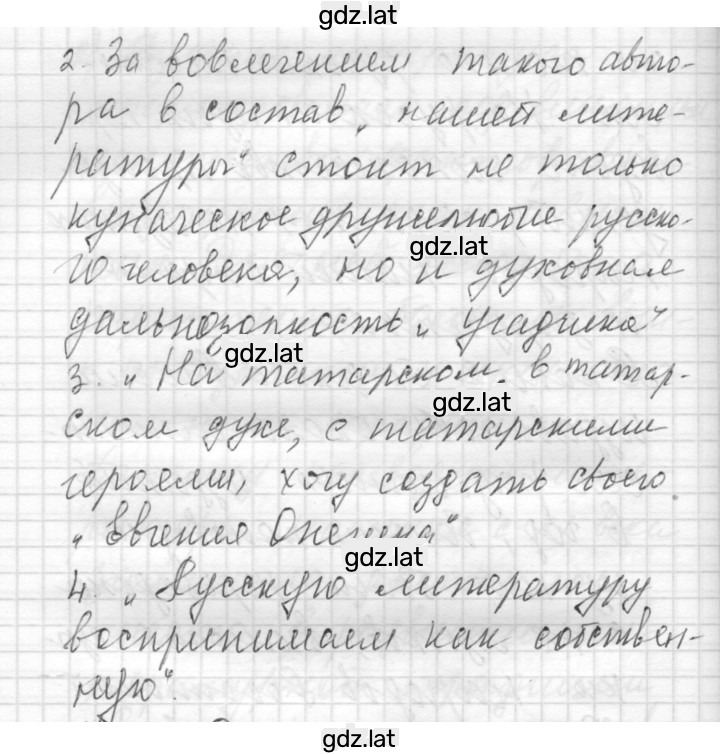 gdz.lat
2. За вовлечением такого авто-
ра в состав „нашей лите-
ратуры" стоит не только
куначеское дружелюбие русско-
gdz.lat
го человека, но и духовная
дальнозоркость „угадчика"
gdz.lat
3. „На татарском. в татар-
gdz.lat
ском духе, с татарскими
героями, хочу создать своего
„Евгения Онегина"
gdz.lat
4. „Русскую литературу
воспринимаем как собствен-
ную".
gdz.lat